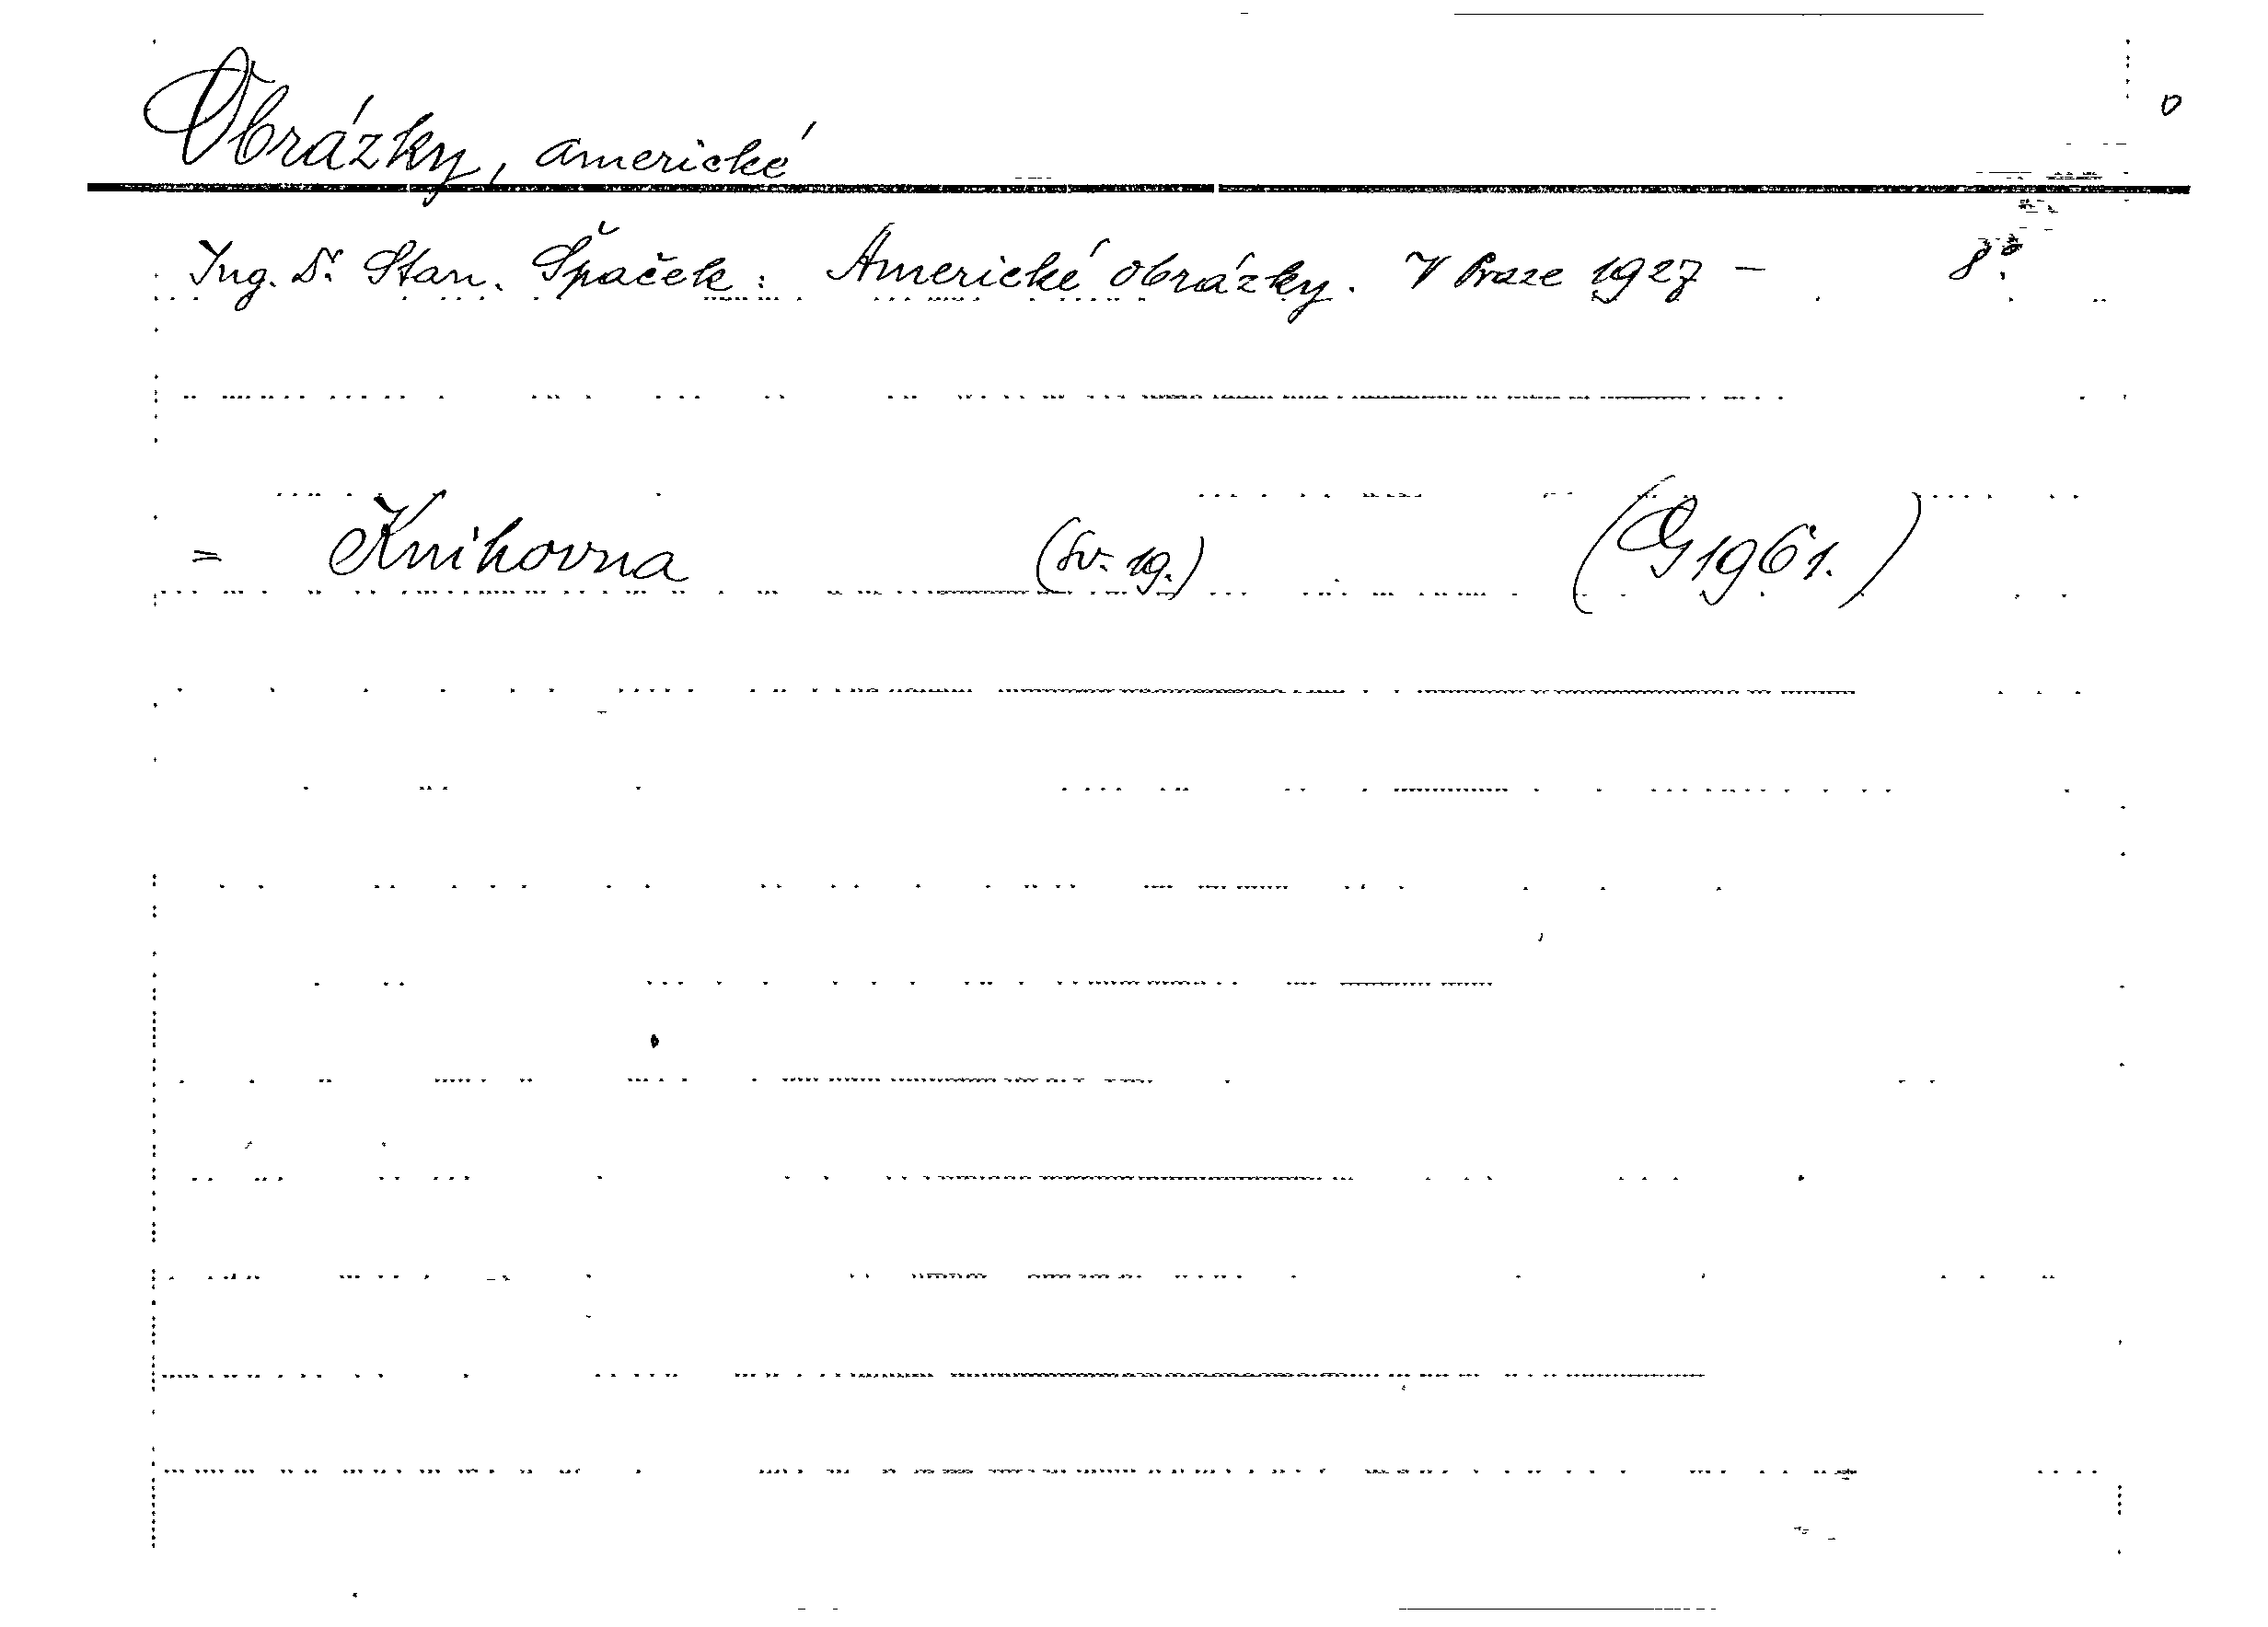 Obrázky, americké
Ing. Dr. Stan. Špaček: Americké obrázky. V Praze 1927 – 8°.
= Knihovna (Sv. 19.) (G 1961.)